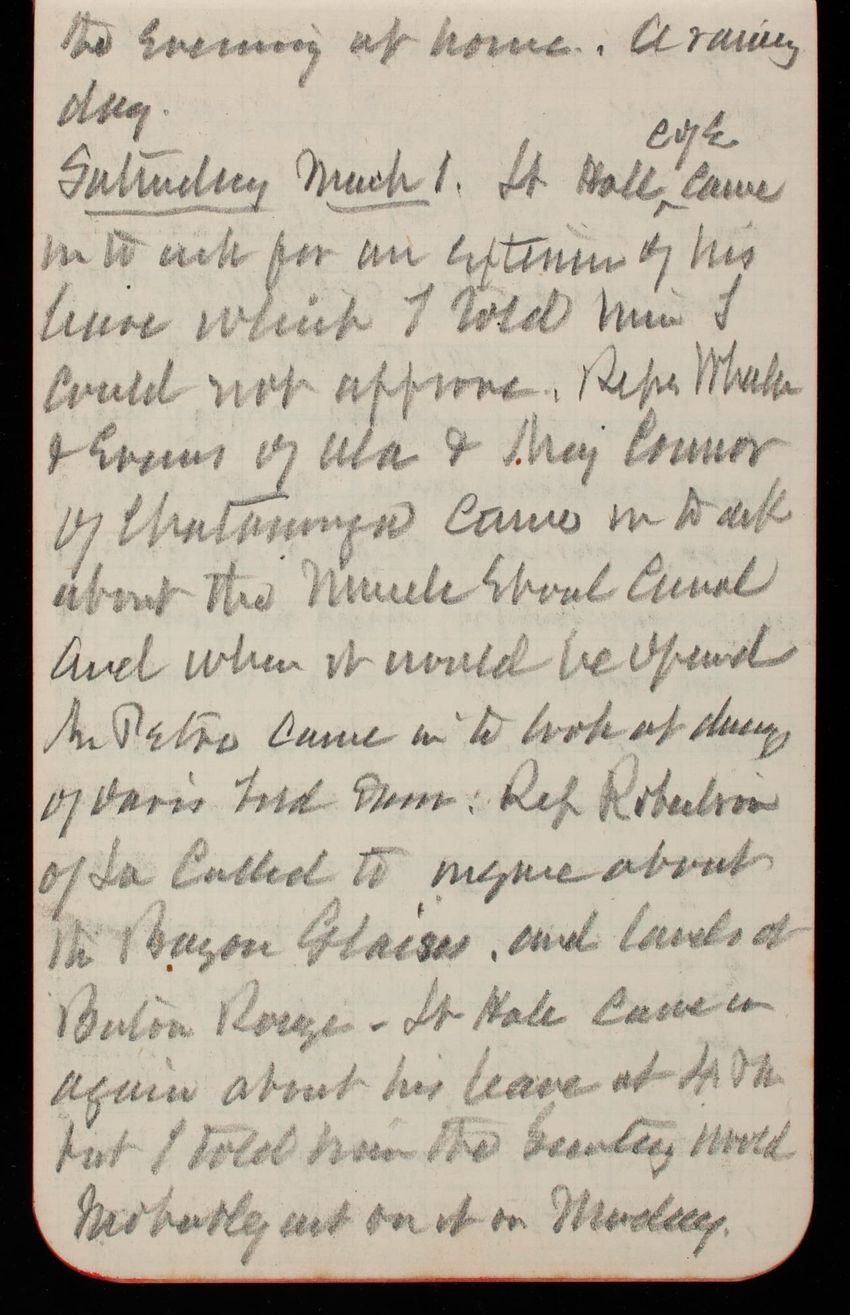 the Evening at home. A rainy
day.
Saturday March 1. Lt Hale C of E came
in to ask for an extension of his
leave which I told him I
could not approve. Reps Wheeler
& Evans of Ala & Maj Connor
of Chatanooga came in to ask
about the Muscle Shoal Canal
and when it would be opened
Mr Petro came in to look at
of Davis Rep Robertson
of La Called to inquire about
the Bayou Glaises. and lands at
Baton Rouge - Lt Hale came in
again about his leave at 4 PM
but I told him the Secretary would
Probably act on it on Monday.